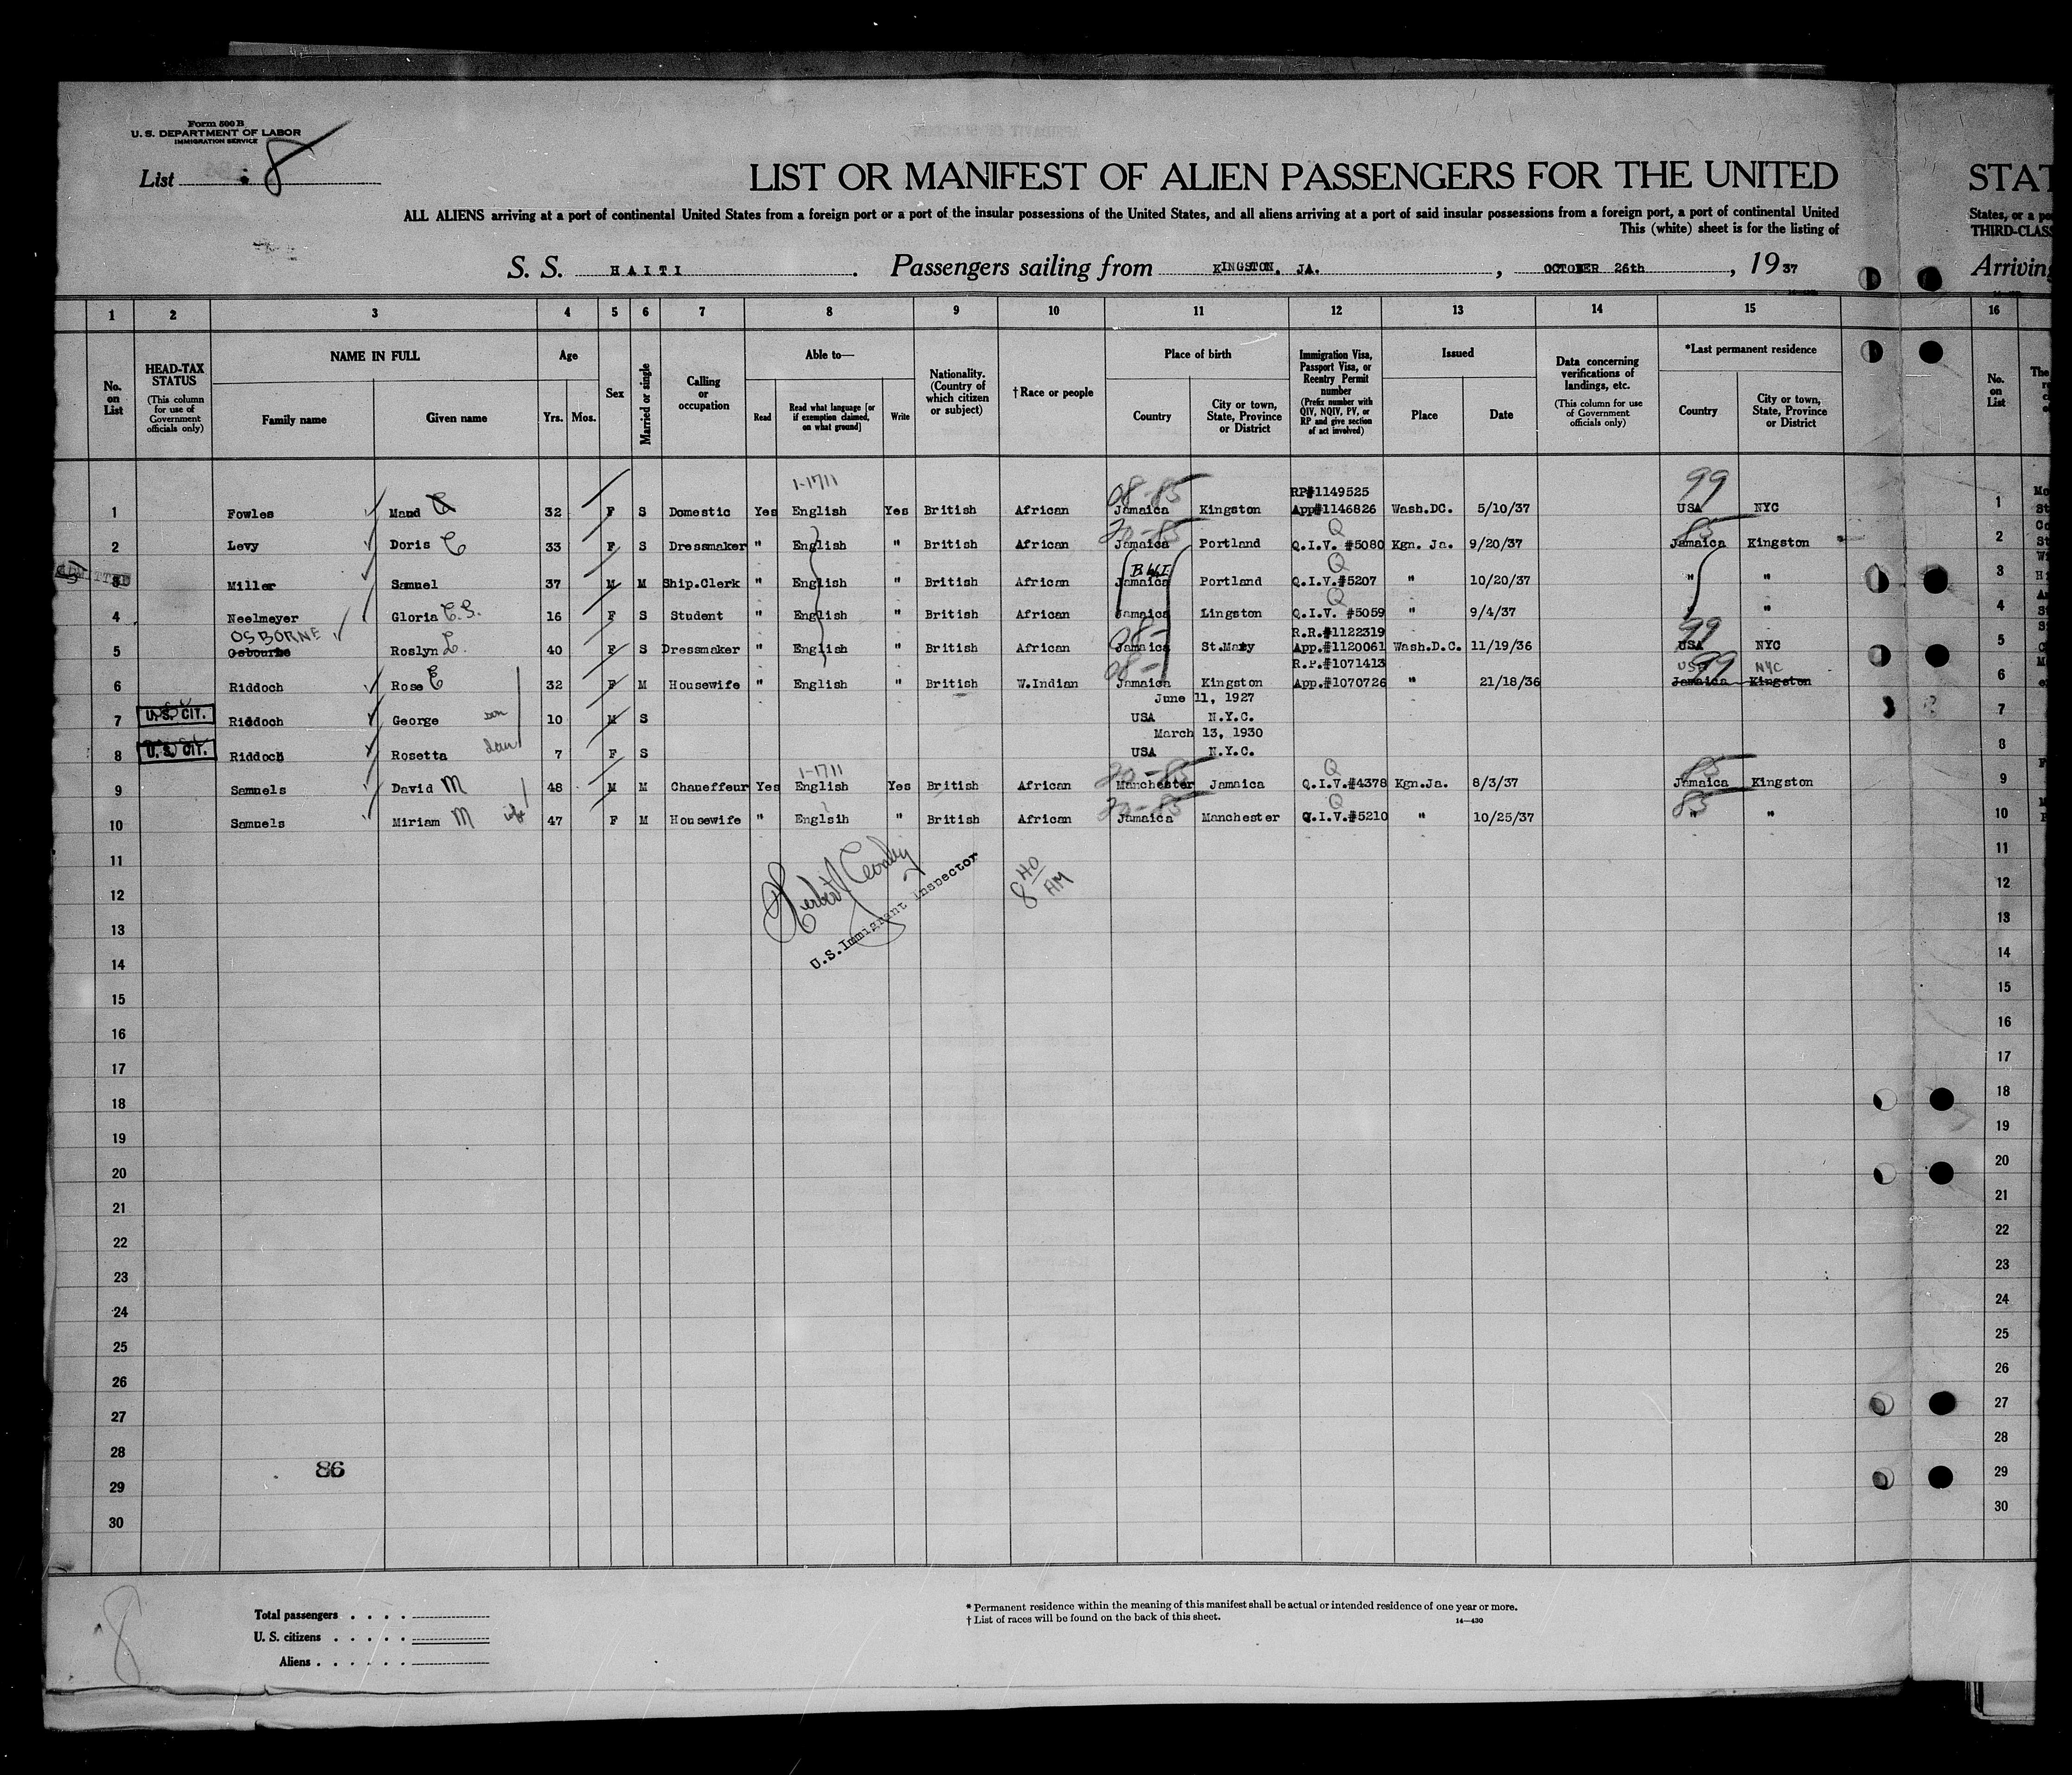 Form 500 B
U. S. DEPARTMENT OF LABOR
IMMIGRATION SERVICE
List 8
LIST OR MANIFEST OF ALIEN PASSENGERS FOR THE UNITED
STAT
ALL ALIENS arriving at a port of continental United States from a foreign port or a port of the insular possessions of the United States, and all aliens arriving at a port of said insular possessions from a foreign port, a port of continental United
States, or a po
This (white) sheet is for the listing of
THIRD-CLASS
S. S. HAITI. Passengers sailing from KINGSTON, JA., OCTOBER 26th, 1937
Arriving
1 2 3 4 5 6 7 8 9 10 11 12 13 14 15 16
No. on List
HEAD-TAX STATUS (This column for use of Government officials only)
NAME IN FULL
Family name
Given name
Age
Yrs.
Mos.
Sex
Married or single
Calling or occupation
Able to—
Read
Read what language [or if exemption claimed, on what ground]
Write
Nationality. (Country of which citizen or subject)
†Race or people
Place of birth
Country
City or town, State, Province or District
Immigration Visa, Passport Visa, or Reentry Permit number (Prefix number with QIV, NQIV, PV, or RP and give section of act involved)
Issued
Place
Date
Data concerning verifications of landings, etc. (This column for use of Government officials only)
*Last permanent residence
Country
City or town, State, Province or District
No. on List
1-1711 08-85 RP#1149525 99
1 Fowles Maud 32 F S Domestic Yes English Yes British African Jamaica Kingston App#1146826 Wash.DC. 5/10/37 USA NYC 1
20-85 Q 85
2 Levy Doris C 33 F S Dressmaker " English " British African Jamaica Portland Q.I.V. #5080 Kgn. Ja. 9/20/37 Jamaica Kingston 2
ADMITTED B.W.I. Q
3 Miller Samuel 37 M M Ship.Clerk " English " British African Jamaica Portland Q.I.V.#5207 " 10/20/37 " " 3
Q
4 Neelmeyer Gloria C.S. 16 F S Student " English " British African Jamaica Lingston Q.I.V. #5059 " 9/4/37 " " 4
OSBORNE 08- R.R.#1122319 99
5 Osbourne Roslyn L. 40 F S Dressmaker " English " British African Jamaica St.Mary App.#1120061 Wash.D.C. 11/19/36 USA NYC 5
08- R.P.#1071413 USA 99 NYC
6 Riddoch Rose E 32 F M Housewife " English " British W.Indian Jamaica Kingston App.#1070726 " 21/18/36 Jamaica Kingston 6
June 11, 1927
U.S. CIT. 7 Riddoch George son 10 M S USA N.Y.C. 7
March 13, 1930
U.S. CIT. 8 Riddoch Rosetta dau 7 F S USA N.Y.C. 8
1-1711 20-85 Q 85
9 Samuels David M 48 M M Chaueffeur Yes English Yes British African Manchester Jamaica Q.I.V.#4378 Kgn.Ja. 8/3/37 Jamaica Kingston 9
20-85 Q 85
10 Samuels Miriam M wife 47 F M Housewife " Englsih " British African Jamaica Manchester Q.I.V.#5210 " 10/25/37 " " 10
11 11
12 12
13 13
Herbert
U.S.Immigrant Inspector
8 40 AM
14 14
15 15
16 16
17 17
18 18
19 19
20 20
21 21
22 22
23 23
24 24
25 25
26 26
27 27
28 28
86
29 29
30 30
8
Total passengers . . . .
U. S. citizens . . . . .
Aliens . . . . . .
* Permanent residence within the meaning of this manifest shall be actual or intended residence of one year or more.
† List of races will be found on the back of this sheet.
14—430